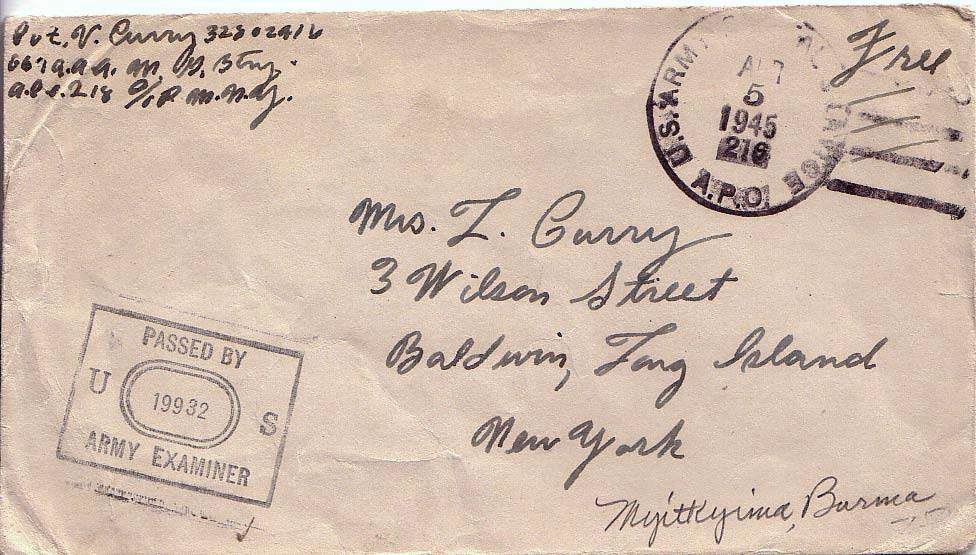 Pvt. V. Curry 32802916
667 a.a.a. M. G. Btry.
a.p.o. 218 c/o P.M. N.Y.
Free
U.S. ARMY
APR
5
1945
216
A.P.O.
Mrs. L. Curry
3 Wilson Street
Baldwin, Long Island
New York
PASSED BY
U 19932 S
ARMY EXAMINER
Myitkyina, Burma